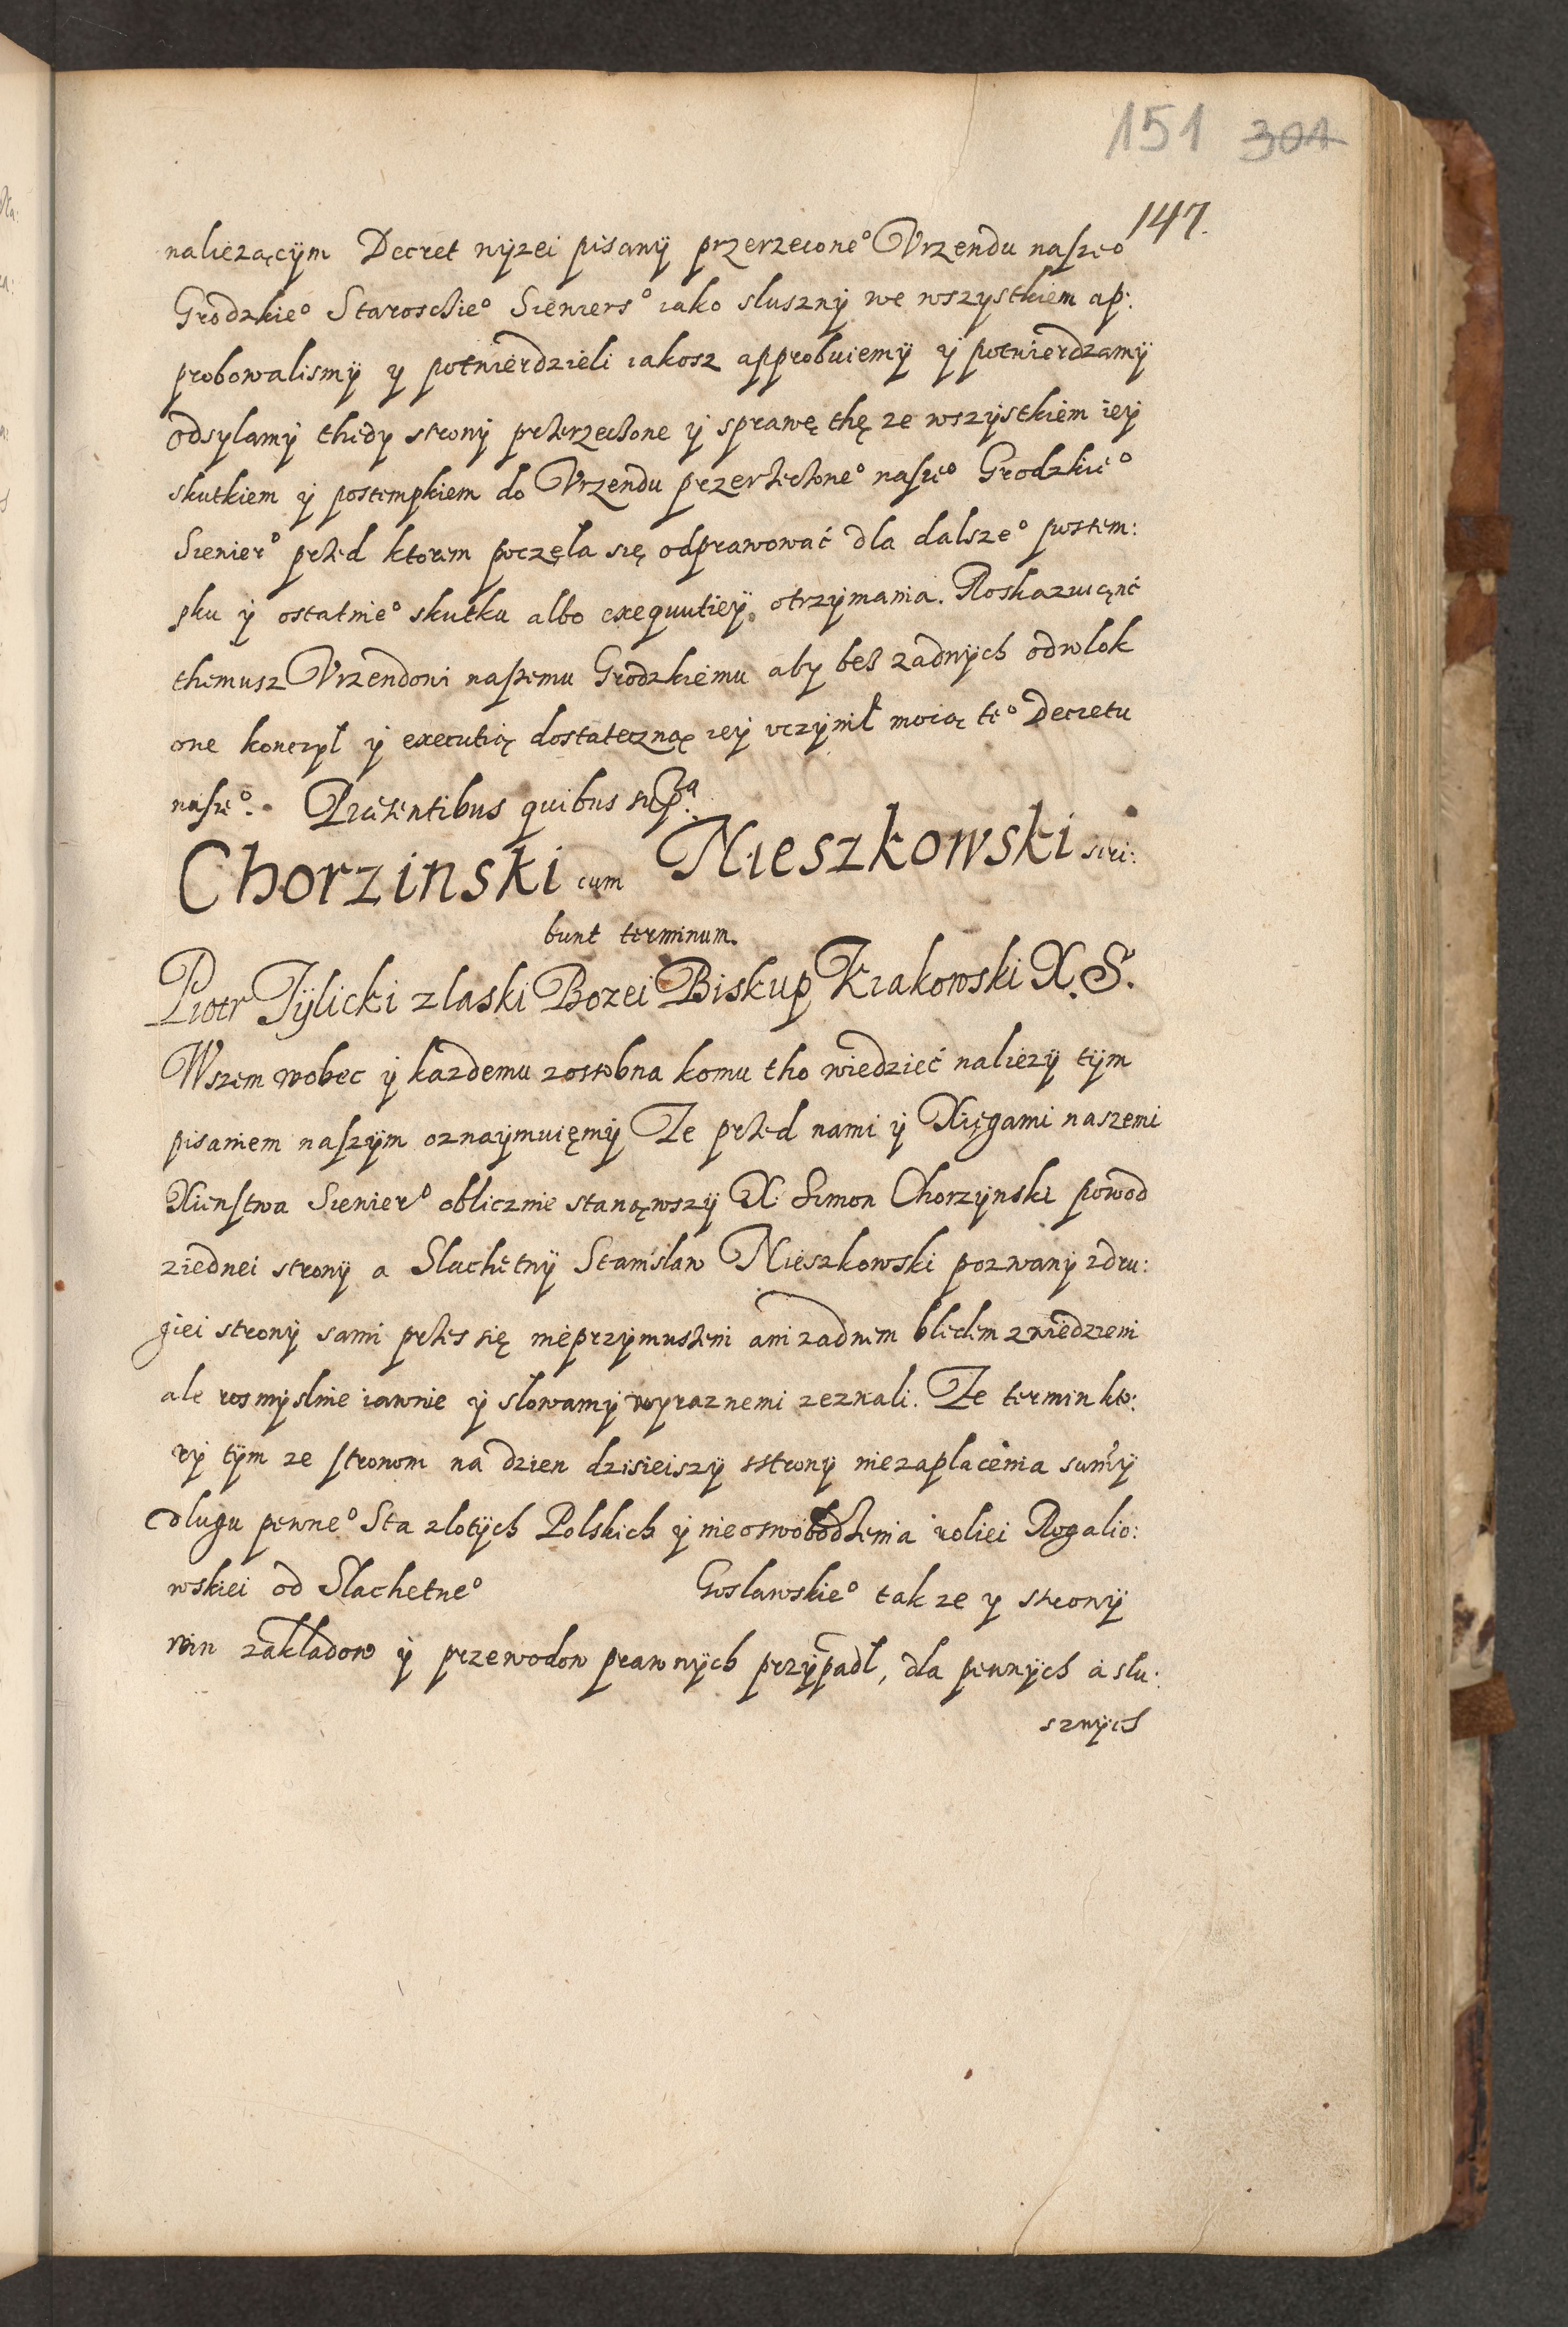 151 301
147.
naliezączÿm Decret nÿzei pisanÿ przerzeczone° Vrzendu nasze°
Grodzkie° Staroschie° Sieniers° iako slusznÿ we wszystkiem ap:
probowalismÿ y potwierdzieli iakosz approbuiemÿ ÿ potwierdzamÿ
odsylamÿ thedy stronÿ przerzeczone ÿ sprawę thę ze wszÿstkiem ieÿ
skutkiem ÿ postempkiem do Vrzendu przerzeczone° nasze° Grodzkie°
Sienier° przed ktorem poczęla się odprawować dla dalsze° postem:
pku ÿ ostatnie° skutku albo exequutieÿ otrzÿmania. Roskazuiąnć
themusz Vrzendowi naszemu Grodzkiemu aby bez zadnÿch odwlok
one konczÿl ÿ executią dostateczną ieÿ vczÿnil mocią te° Decretu
nasze°. Præsentibus quibus supra.
Chorzinski cum Nieszkowski scri:
bunt terminum.
Piotr Tÿlicki z laski Bozei Biskup Krakowski X. S.
Wszem wobec ÿ kazdemu zossobna komu tho wiedzieć naliezÿ tÿm
pisaniem naszÿm oznaÿmuięmÿ Ze przed nami ÿ Xięgami naszemi
Xienstwa Sienier° oblicznie stanąwszÿ X. Simon Chorzÿnski powod
ziednei stronÿ a Slachetnÿ Stanislaw Nieszkowski pozwanÿ zdru:
giei stronÿ sami przes się nieprzÿmuszeni ani zadnem blędem zwiedzieni
ale rosmÿslnie iawnie ÿ slowamÿ wyraznemi zeznali. Ze termin kto:
rÿ tÿm ze stronom na dzien dzisieiszÿ sstronÿ niezaplacenia sumÿ
dlugu pewne° Sta zlotÿch Polskich ÿ nieoswobodzenia roliei Rogalio:
wskiei od Slachetne° Goslawskie° takze y stronÿ
win zakladow ÿ przewodow prawnÿch przÿpadl, dla pewnÿch a slu:
sznÿch